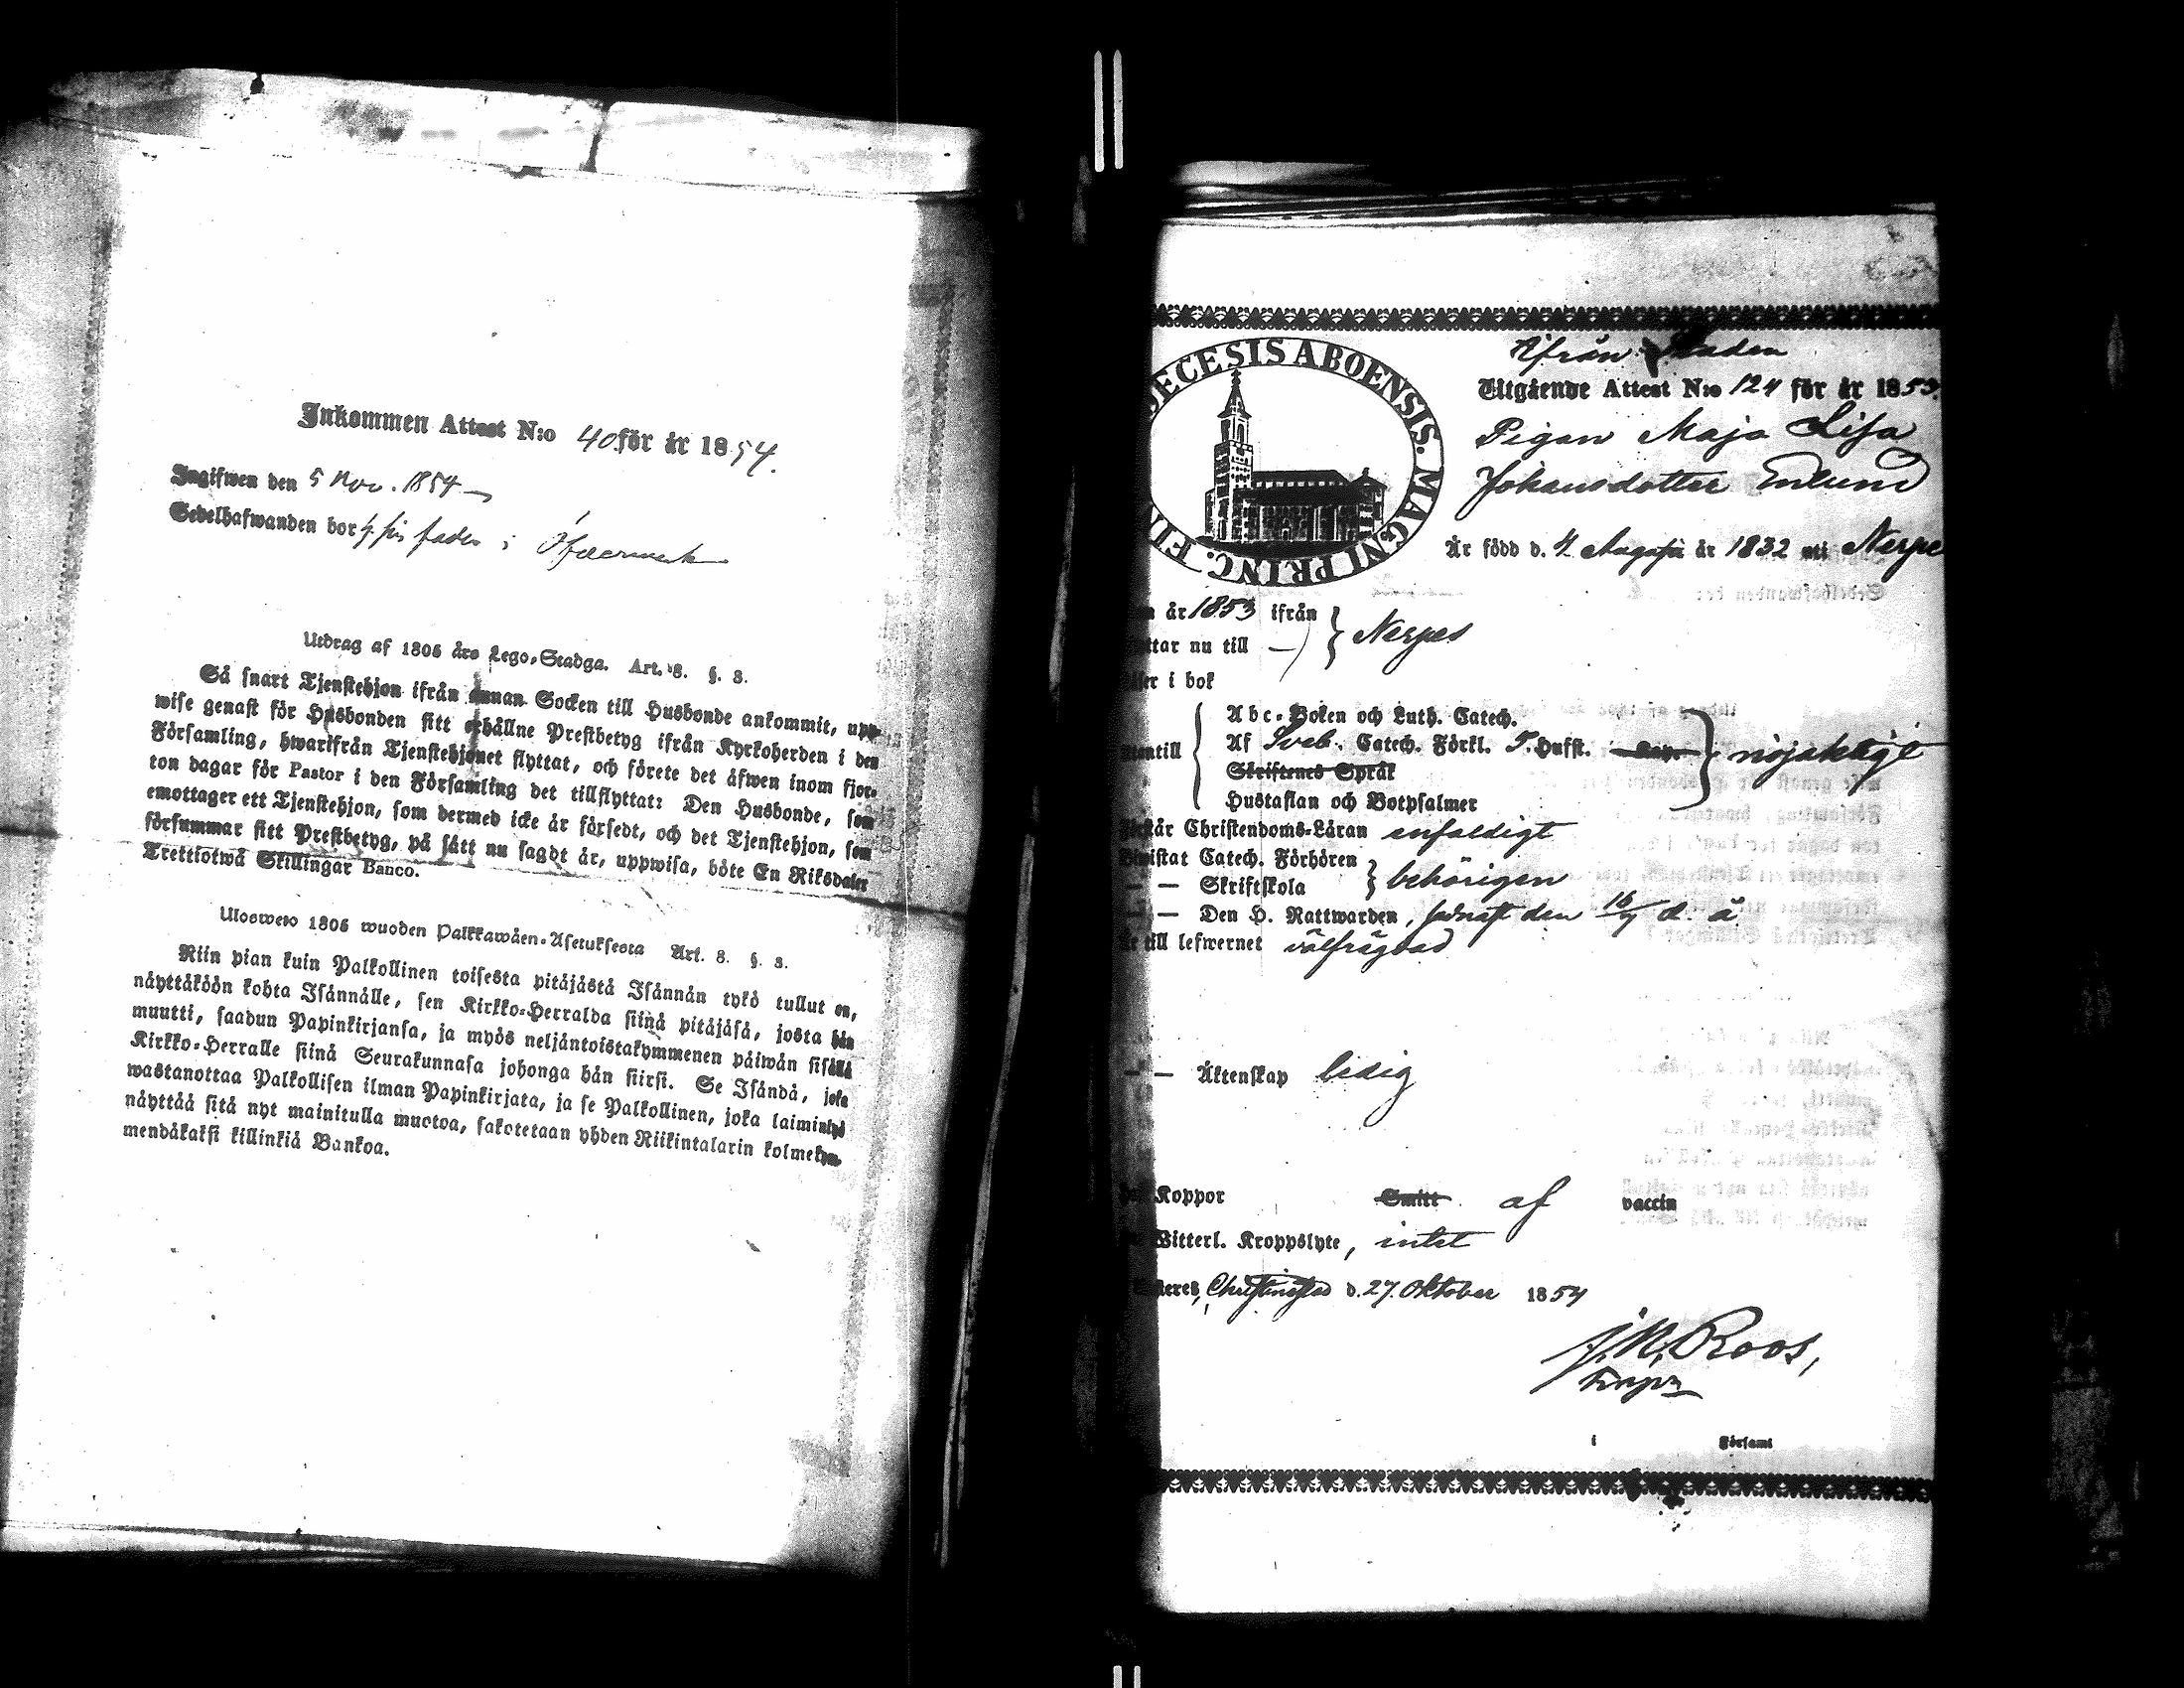 Inkommen Attest N:o 40 för år 1854.
Ingifwen den 5 Nov. 1854
Sedelhafwanden bor i
Utdrag af 1805 års Lego-Stadga. Art. 8. §. 3.
Så snart Tjenstehjon ifrån annan Socken till Husbonde ankommit, upp-
wise genast för Husbonden sitt erhållne Prestbetyg ifrån Kyrkoherden i den
Församling, hwarifrån Tjenstehjonet flyttat, och förete det äfwen inom fjor-
ton dagar för Pastor i den Församling det tillflyttat: Den Husbonde, som
emottager ett Tjenstehjon, som dermed icke är försedt, och det Tjenstehjon, som
försummar sitt Prestbetyg, på sätt nu sagdt är, uppwisa, böte En Riksdaler
Trettiotwå Skillingar Banco.
Ulosweto 1805 wuoden Palkkawäen-Asetuksesta Art. 8. §. 3.
Niin pian kuin Palkollinen toisesta pitäjästä Isännän tykö tullut on,
näyttäköön kohta Isännälle, sen Kirkko-Herralda siinä pitäjäsä, josta hän
muutti, saadun Papinkirjansa, ja myös neljäntoistakymmenen päiwän sisällä
Kirkko-Herralle siinä Seurakunnasa johonga hän siirsi. Se Isändä, joka
wastanottaa Palkollisen ilman Papinkirjata, ja se Palkollinen, joka laiminlyö
näyttää sitä nyt mainitulla muotoa, sakotetaan yhden Riikintalarin kolmekym-
mendäkaksi killinkiä Bankoa.
DIECESIS ABOENSIS. MAGNI PRINC. FIN
Ifrån Staden
Utgående Attest N:o 124 för år 1853.
Pigan Maja Lisa
Johansdotter Enlund
Är född d. 4 Augusti år 1832 uti Nerpe
år 1853 ifrån
ttar nu till } Nerpes
er i bok
Abc-Boken och Luth. Catech.
Utantill Af Sveb. Catech. Förkl. T. Husst. nöjaktigt
Skriftenes Språk
Hustaflan och Botpsalmer
Christendoms-Läran enfaldigt
Catech. Förhören
— — Skriftskola } behörigen
— Den H. Nattwarden, sednast den 16/7 d. å
till lefwernet välfrägdad
— — Äktenskap ledig
Koppor Smitt af vaccin
Witterl. Kroppslyte, intet
teres, Christinestad d. 27. Oktober 1854
J. N. Roos,
i Församl